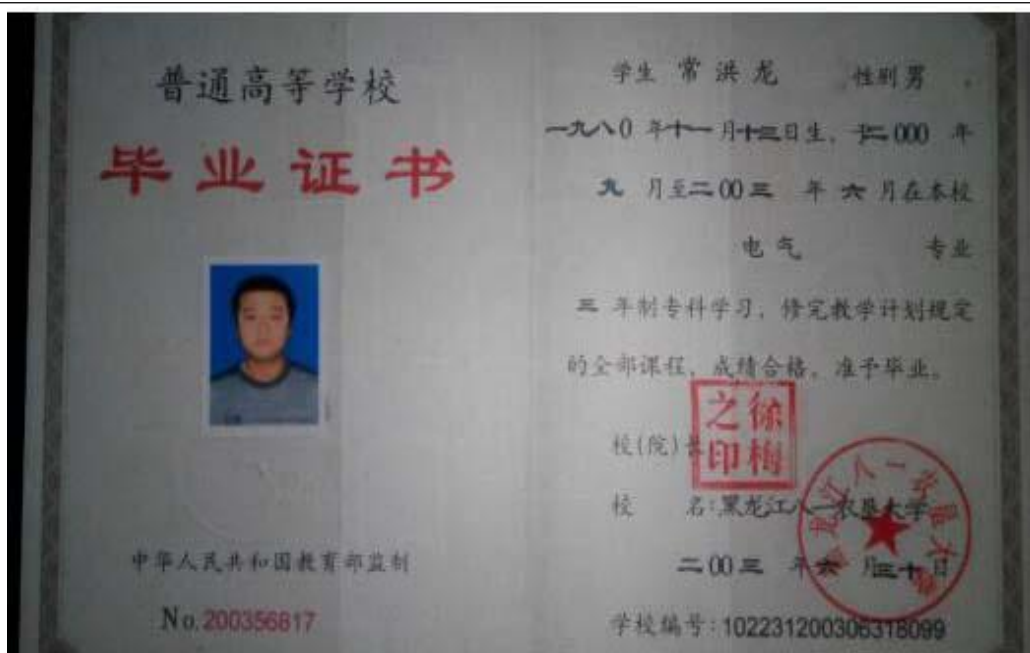 普通高等学校
毕业证书
中华人民共和国教育部监制
No.200356817
学生 常洪龙 ,性别男 ,
一九八0 年十一月十三日生, 于二000 年
九 月至二00三 年 六 月在本校
电气 专业
三 年制专科学习, 修完教学计划规定
的全部课程, 成绩合格, 准予毕业。
校(院)长
之徐
印梅
校 名:黑龙江八一农垦大学
二00三 年六 月三十日
学校编号:102231200306318099